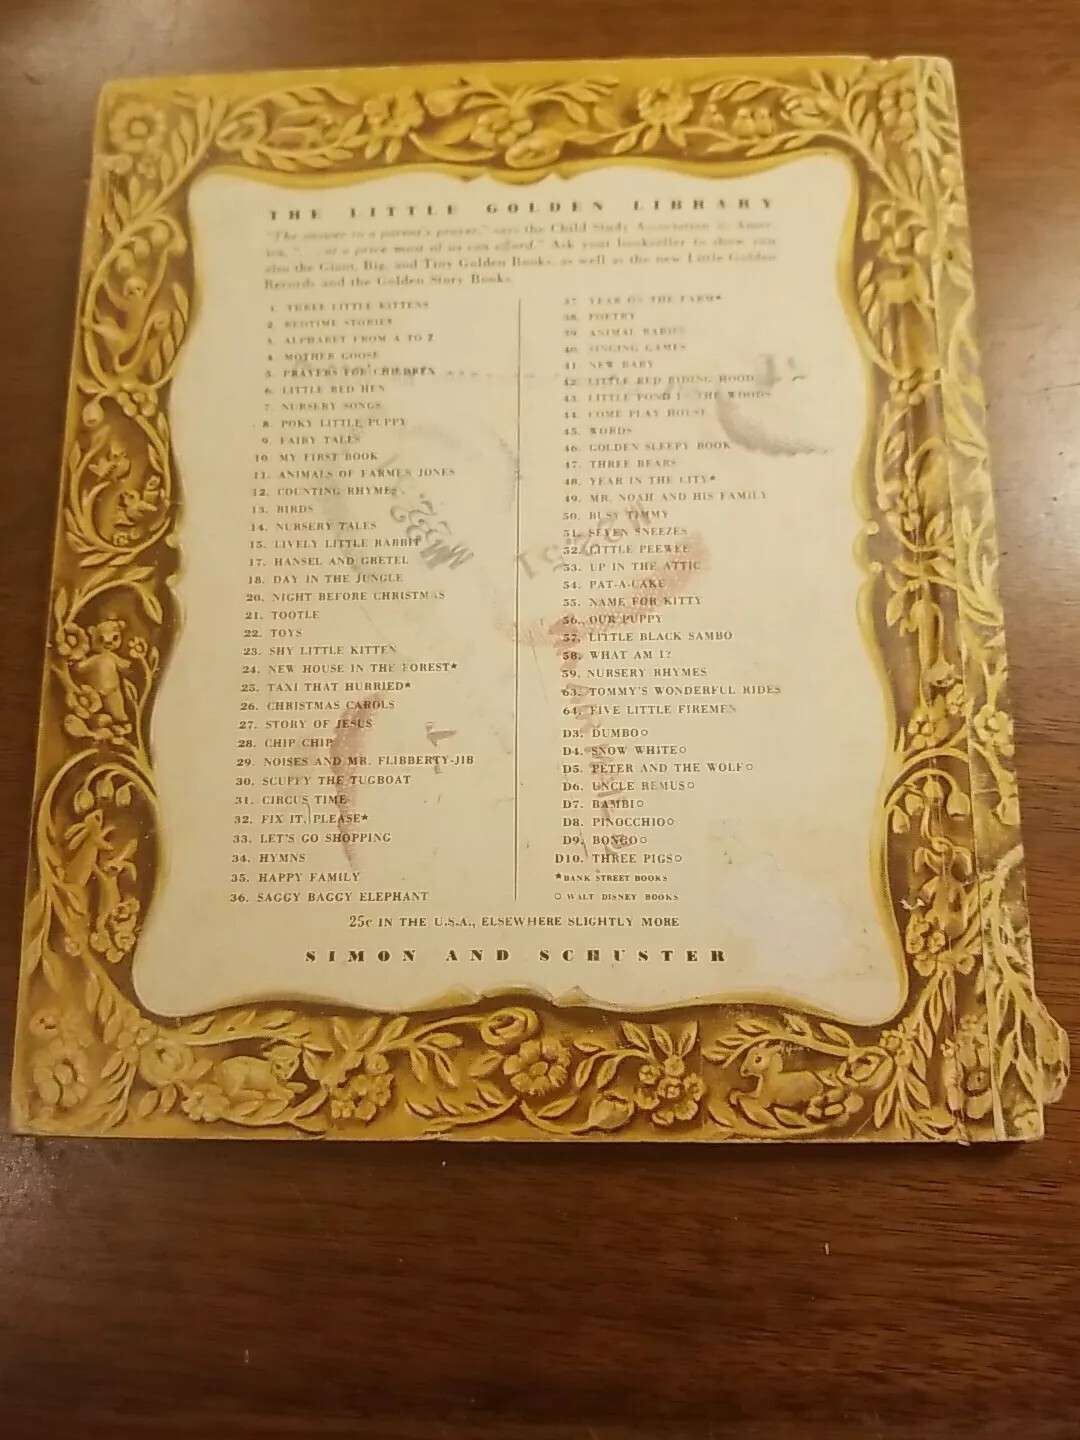 THE LITTLE GOLDEN LIBRARY
"The answer to a parent's prayer," says the Child Study Association of Amer-
ica, "... at a price most of us can afford." Ask your bookseller to show you
also the Giant, Big, and Tiny Golden Books, as well as the new Little Golden
Records and the Golden Story Books.
1. THREE LITTLE KITTENS
2. BEDTIME STORIES
3. ALPHABET FROM A TO Z
4. MOTHER GOOSE
5. PRAYERS FOR CHILDREN
6. LITTLE RED HEN
7. NURSERY SONGS
8. POKY LITTLE PUPPY
9. FAIRY TALES
10. MY FIRST BOOK
11. ANIMALS OF FARMER JONES
12. COUNTING RHYMES
13. BIRDS
14. NURSERY TALES
15. LIVELY LITTLE RABBIT
17. HANSEL AND GRETEL
18. DAY IN THE JUNGLE
20. NIGHT BEFORE CHRISTMAS
21. TOOTLE
22. TOYS
23. SHY LITTLE KITTEN
24. NEW HOUSE IN THE FOREST★
25. TAXI THAT HURRIED★
26. CHRISTMAS CAROLS
27. STORY OF JESUS
28. CHIP CHIP
29. NOISES AND MR. FLIBBERTY-JIB
30. SCUFFY THE TUGBOAT
31. CIRCUS TIME
32. FIX IT, PLEASE★
33. LET'S GO SHOPPING
34. HYMNS
35. HAPPY FAMILY
36. SAGGY BAGGY ELEPHANT
37. YEAR ON THE FARM★
38. POETRY
39. ANIMAL BABIES
40. SINGING GAMES
41. NEW BABY
42. LITTLE RED RIDING HOOD
43. LITTLE POND IN THE WOODS
44. COME PLAY HOUSE
45. WORDS
46. GOLDEN SLEEPY BOOK
47. THREE BEARS
48. YEAR IN THE CITY★
49. MR. NOAH AND HIS FAMILY
50. BUSY TIMMY
51. SEVEN SNEEZES
52. LITTLE PEEWEE
53. UP IN THE ATTIC
54. PAT-A-CAKE
55. NAME FOR KITTY
56. OUR PUPPY
57. LITTLE BLACK SAMBO
58. WHAT AM I?
59. NURSERY RHYMES
63. TOMMY'S WONDERFUL RIDES
64. FIVE LITTLE FIREMEN
D3. DUMBO○
D4. SNOW WHITE○
D5. PETER AND THE WOLF○
D6. UNCLE REMUS○
D7. BAMBI○
D8. PINOCCHIO○
D9. BONGO○
D10. THREE PIGS○
★BANK STREET BOOKS
○ WALT DISNEY BOOKS
25c IN THE U.S.A., ELSEWHERE SLIGHTLY MORE
SIMON AND SCHUSTER